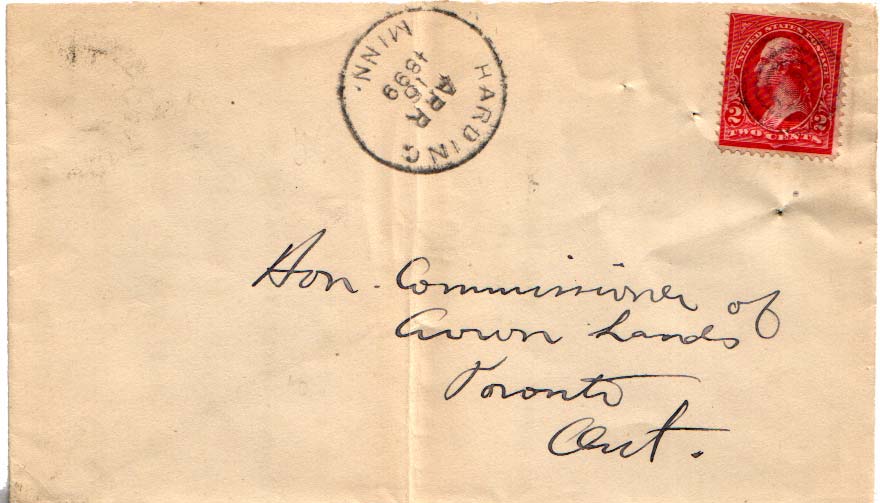 HARDING
MINN.
APR
16
1899
UNITED STATES POSTAGE
2 2
TWO CENTS
Hon. Commissioner of
Crown Lands
Toronto
Ont.